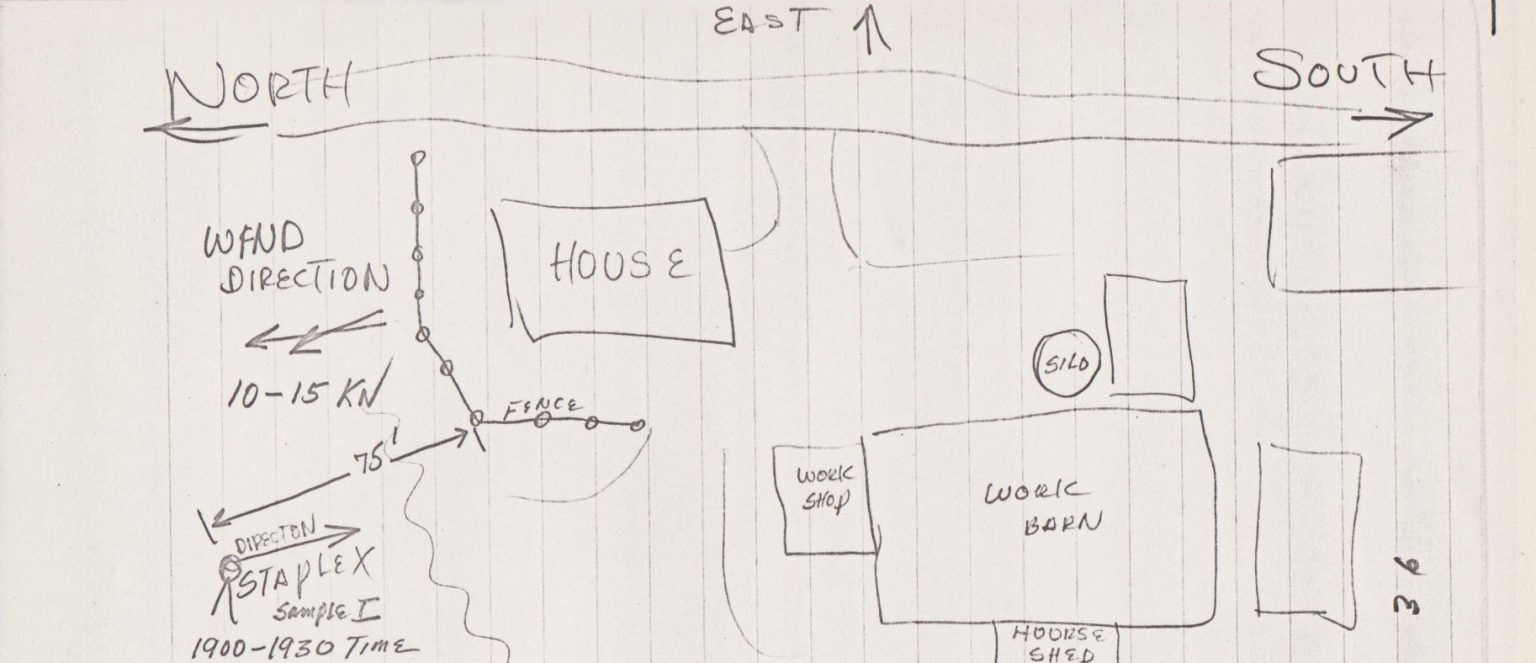 EAST
NORTH
SOUTH
WIND
DIRECTION
10-15 KN
HOUSE
FENCE
75'
SILO
WORK
SHOP
WORK
BARN
DIRECTON
STAPLEX
SAMPLE I
1900-1930 TIME
HOURSE
SHED
36